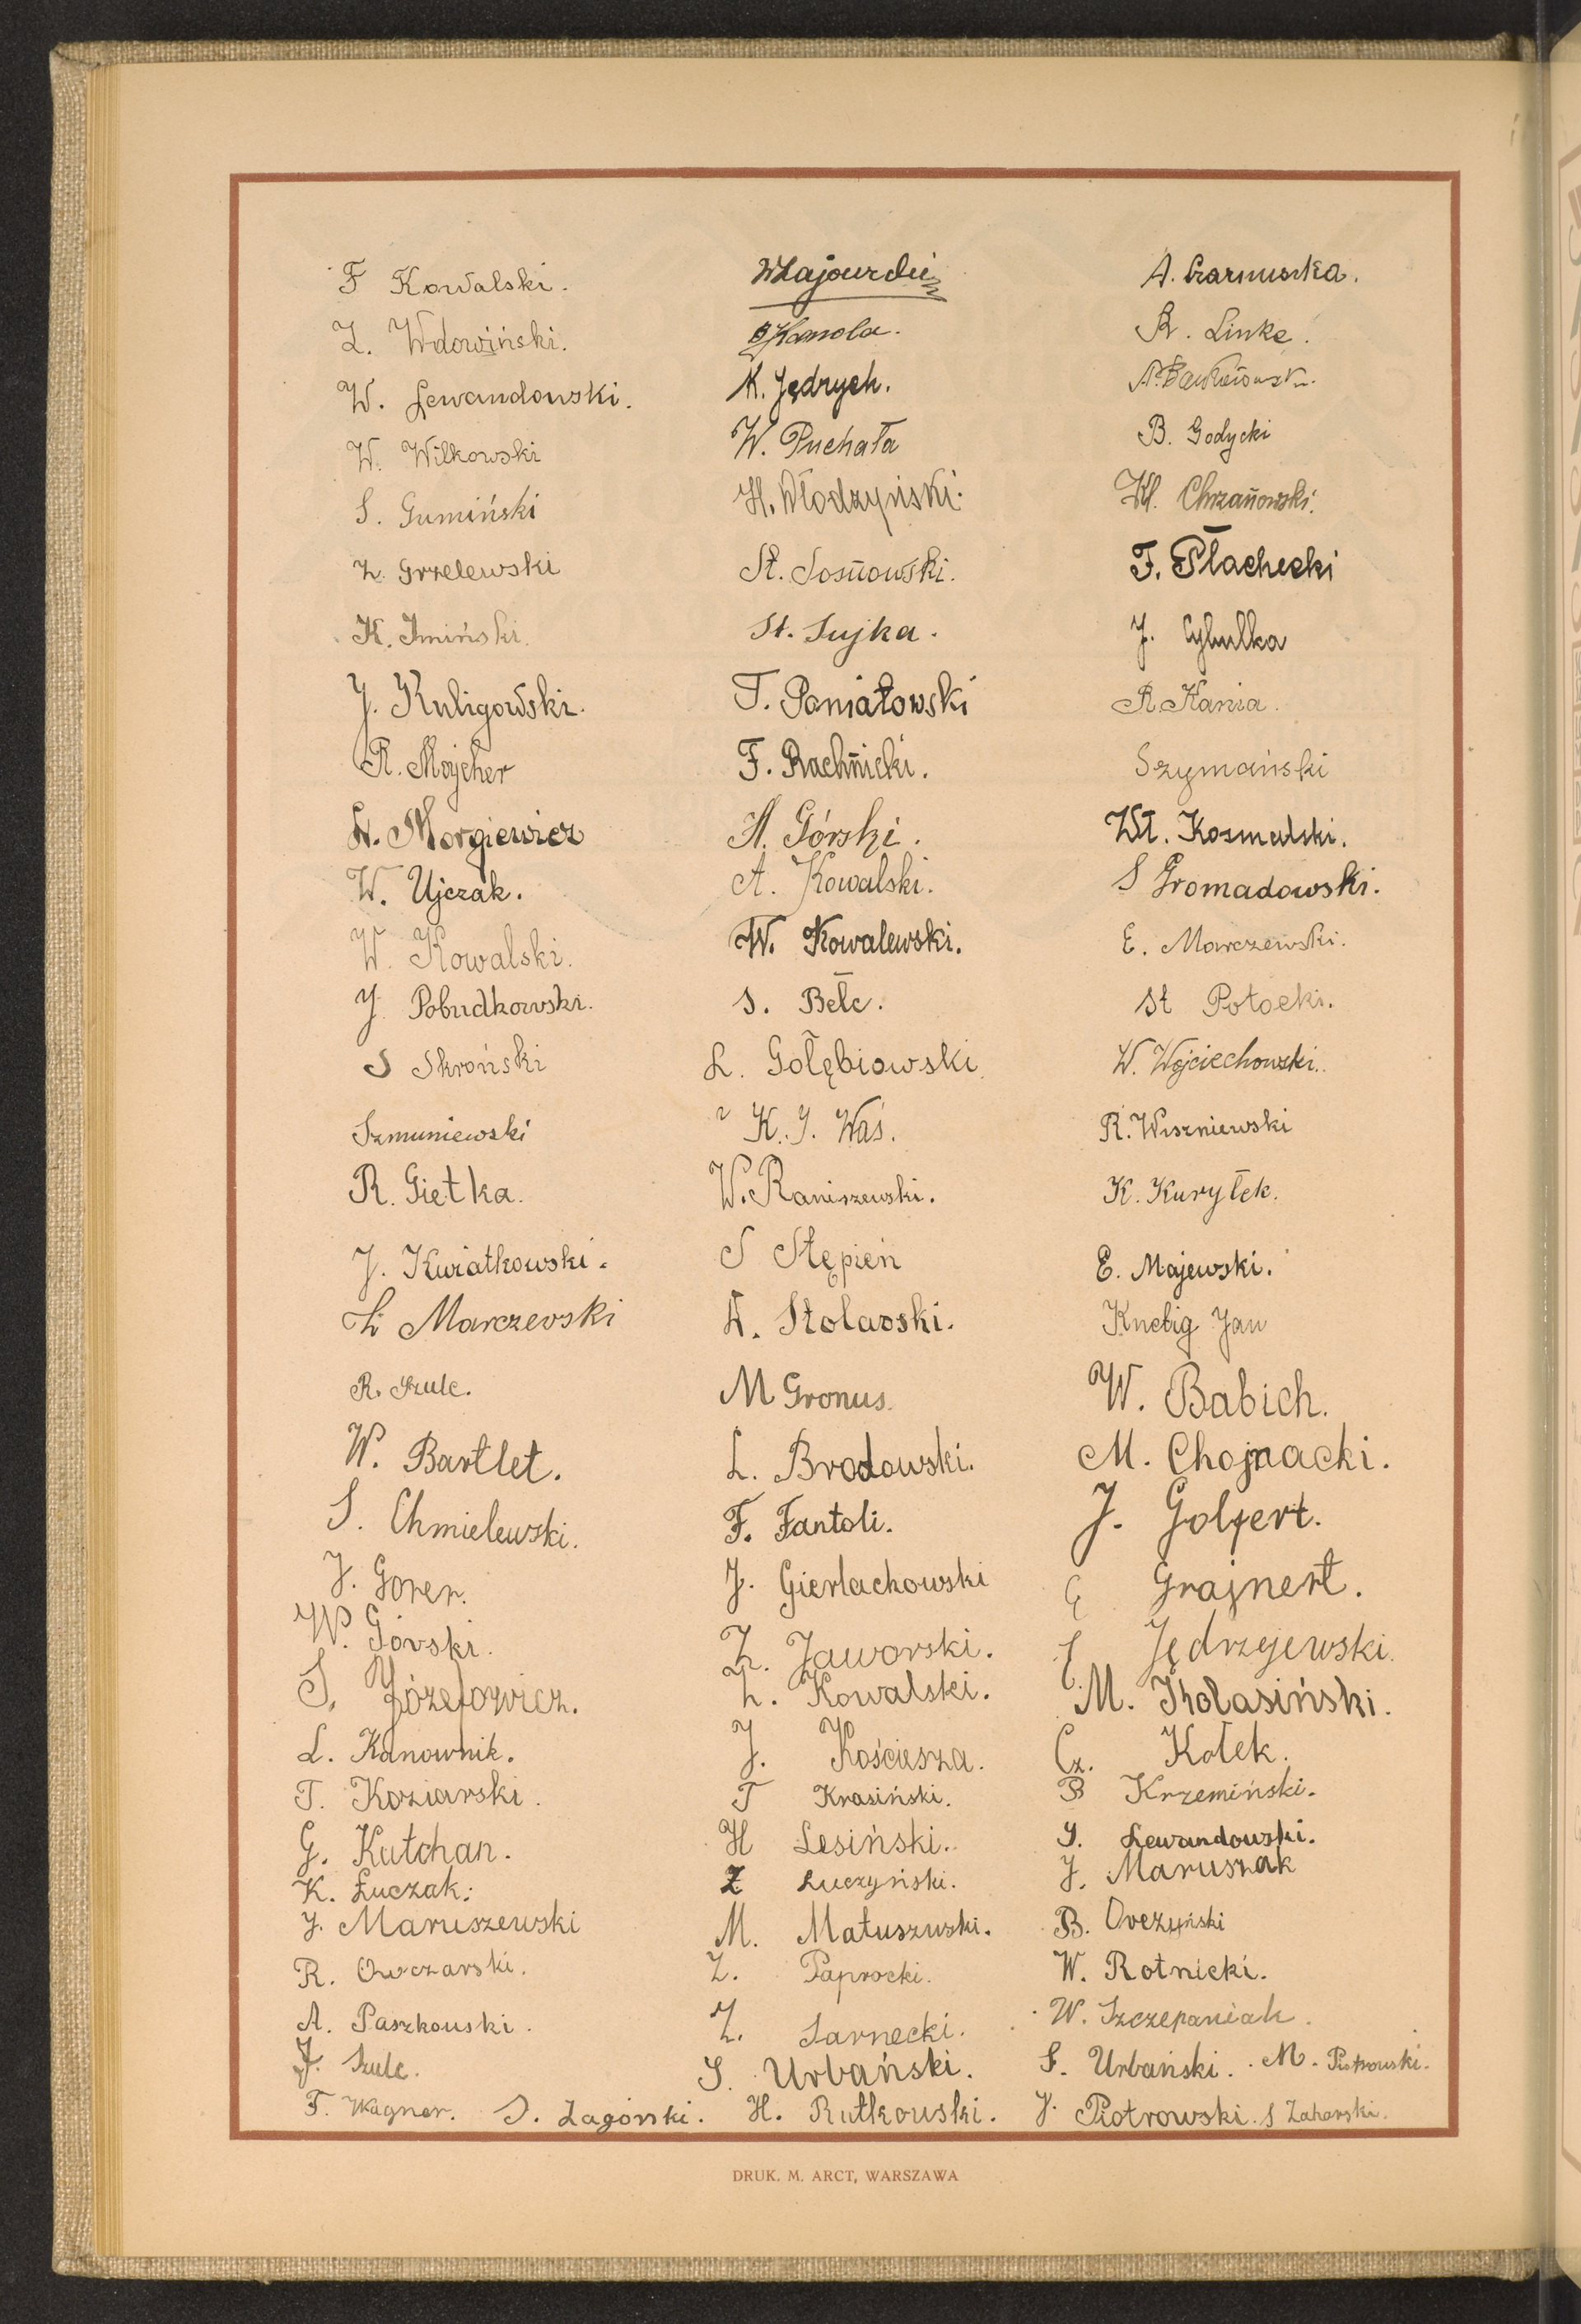 F Kowalski. A. Czarnuszka.
Z. Wdowiński. Kanola. R. Linke.
W. Lewandowski. K. Jędrych.
W. Wilkowski W. Puchała B. Godycki
S. Gumiński H. Włodzyński. Wł. Chrzanowski.
Z. Grzelewski St. Sosnowski. F. Płachecki
K. Imiński. St. Sujka. J. Cybulka
J. Kuligowski. T. Poniatowski R. Kania.
R. Mojcher F. Rachnicki. Szymański
A. Morgiewicz A. Górski. Wł. Kosmalski.
W. Ujczak. A. Kowalski. S Gromadowski.
W. Kowalski. W. Kowalewski. E. Marczewski.
J. Pobudkowski. S. Bełc. St Potocki.
S Skroński L. Gołębiowski. W. Wojciechowski.
Szmuniewski K. J. Waś. R. Wiszniewski
R. Giętka. W. Raniszewski. K. Kuryłek.
J. Kwiatkowski. S Stępień E. Majewski.
Marczewski A. Stolarski. Knebig Jan
R. Szulc. M Gronus. W. Babich.
W. Bartlet. L. Brodowski. M. Chojnacki.
S. Chmielewski. F. Fantoli. J. Golfert.
J. Gorer. J. Gierlachowski G Grajnert.
W. Górski. Z. Jaworski. J Jędrzejewski.
S. Józefowicz. Z. Kowalski. M. Kolasiński.
L. Kanownik. J. Kościesza. Cz. Kołek.
T. Koziarski. T Krasiński. B Krzemiński.
G. Kutchan. H Lesiński. J. Lewandowski.
K. Łuczak. Z Łuczyński. J. Maruszak
J. Maruszewski M. Matuszwski. B. Ovczyński
R. Owczarski. Z. Paprocki. W. Rotnicki.
A. Paszkowski. Z. Sarnecki. W. Szczepaniak.
J. Szulc. S. Urbański. S. Urbański. M. Piotrowski.
F. Wagner. S. Zagórski. H. Rutkowski. J. Piotrowski. S Zaharski.
DRUK. M. ARCT, WARSZAWA